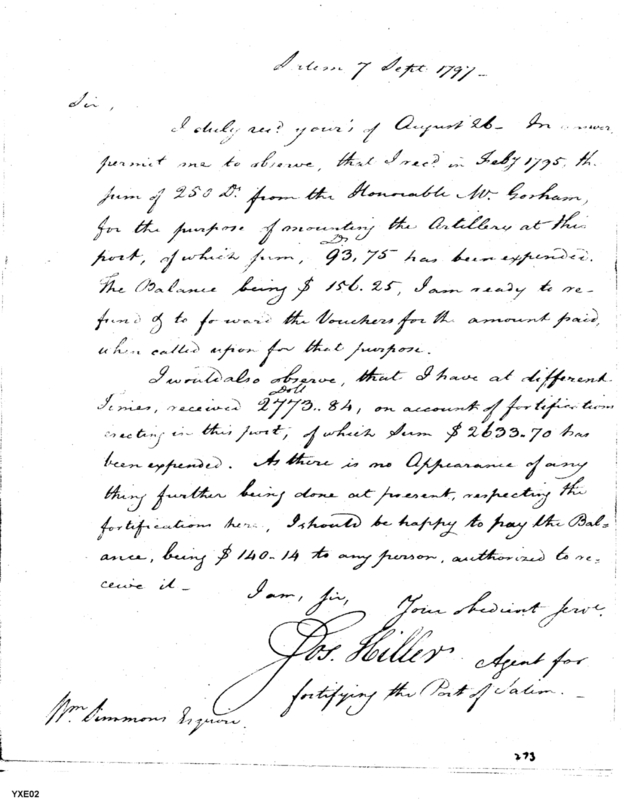 Salem 7 Sept 1797 -
Sir,
I duly recd your's of August 26 - In answer
permit me to observe, that I recd in Feby 1795, th
sum of 250 Ds from the Honorable Mr. Gorham,
for the purpose of mounting the Artillery at this
Ds
port, of which sum, 93,75 has been expended.
The Balance being $ 156.25, I am ready to re-
fund & to forward the Vouchers for th amount paid,
when called upon for that purpose.
I would also observe, that I have at different
Doll
Times, received 2773..84, on account of fortifications
erecting in this port, of which Sum $ 2633.70 has
been expended. As there is no Appearance of any
thing further being done at present, respecting the
fortifications here, I should be happy to pay the Bal-
ance, being $ 140-14 to any person, authorized to re-
ceive it -
I am, Sir,
Your obedient Servt.
Jos. Hiller Agent for
fortifying the Port of Salem. -
Wm Simmons Esquire.
273
YXE02